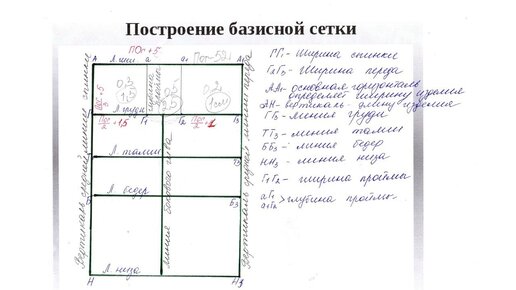 Построение базисной сетки
ПОг+5
А Л.шеи а а₁ Пог-59.1 А₁
0,3
1,5
0,2
1 см
Л.груди
Г₁ Г₂
Л. талии
Л. бедер
Б₃
Л. низа
Н Н₃
Вертикаль средней линии спинки
Линия бокового шва
ширина проймы
Вертикаль средней линии переда
ГГ₁- Ширина спинки
Г₂Г₃- Ширина переда
АА₁- основная горизонталь
определяет ширину изделия
АН- вертикаль- длину изделия
ГГ₃- линия груди
ТТ₃- линия талии
ББ₃- линия бедер
НН₃ - линия низа
Г₁Г₂ - ширина проймы
аГ₁
а₁Г₂ > глубина проймы-